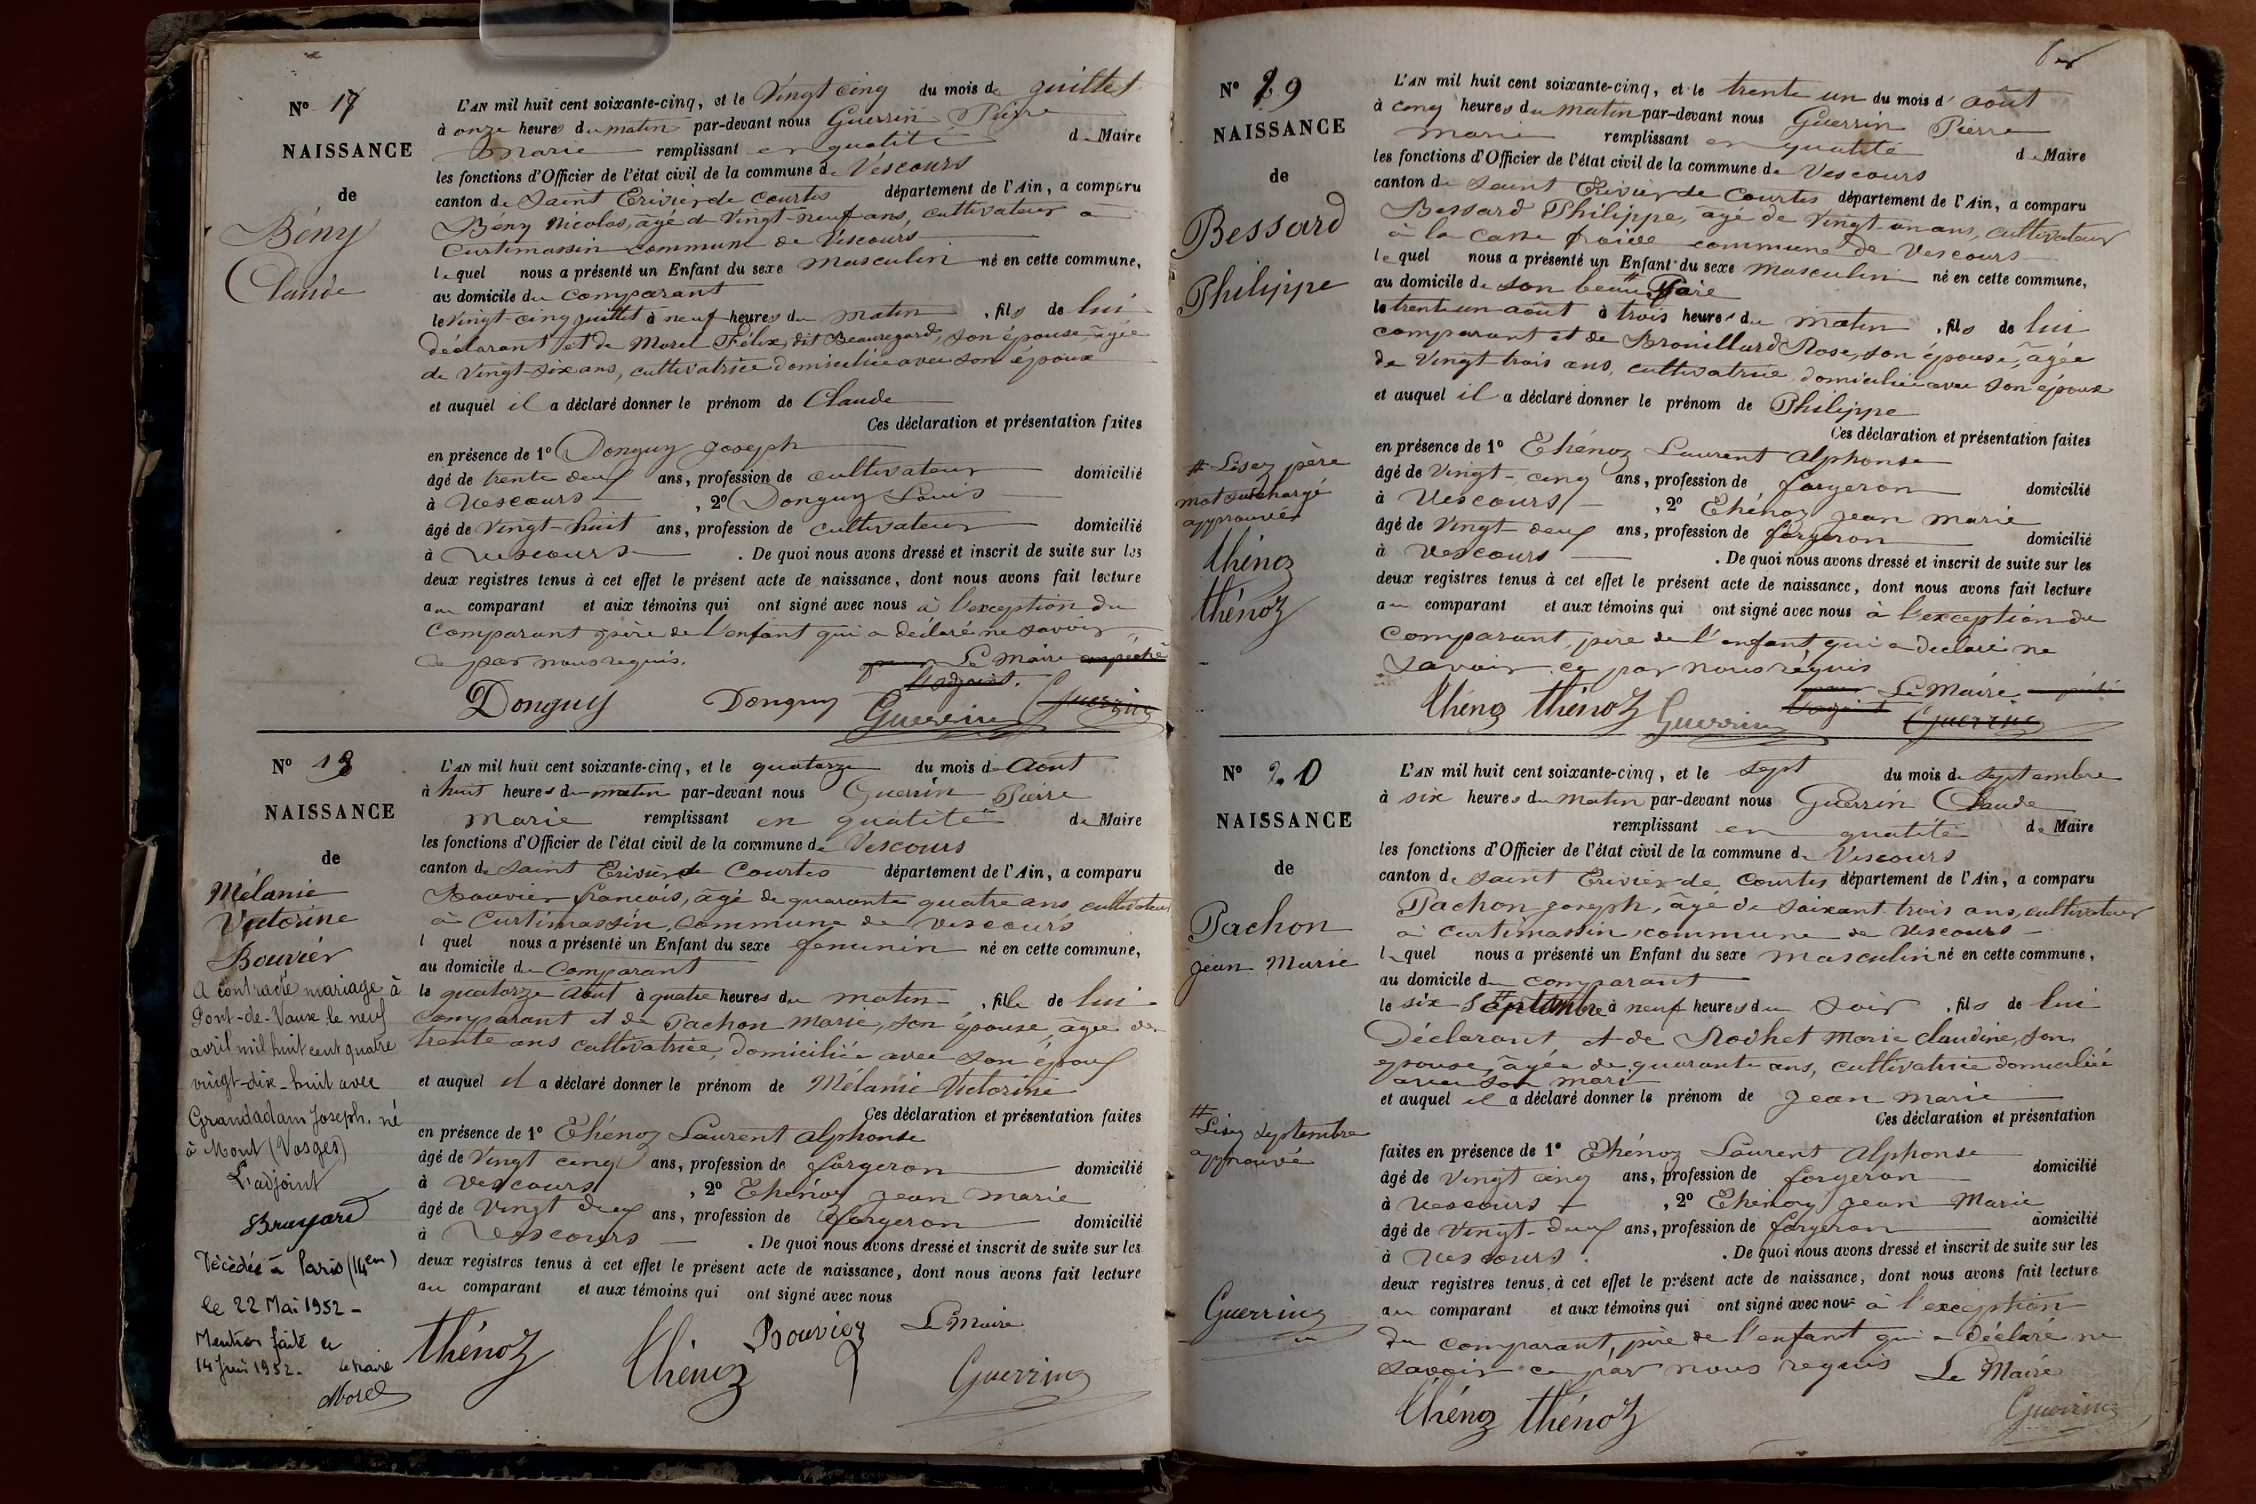 N° 17
NAISSANCE
de
Bény
Claude
L'AN mil huit cent soixante-cinq, et le Vingt cinq du mois de Juillet
à onze heures du matin par-devant nous Guerrin Pierre
Marie remplissant en qualité de Maire
les fonctions d'Officier de l'état civil de la commune de Vescours
canton de Saint Trivier de Courtes département de l'Ain, a comparu
Bény Nicolas, âgé de Vingt-neuf ans, cultivateur à
Curtimassin commune de Vescours
lequel nous a présenté un Enfant du sexe masculin né en cette commune,
au domicile du comparant
le Vingt-cinq juillet à neuf heures du matin, fils de lui
déclarant et de Morel Félix, dit Beauregard, son épouse, âgée
de Vingt-six ans, cultivatrice domiciliée avec son époux
et auquel il a déclaré donner le prénom de Claude
Ces déclaration et présentation faites
en présence de 1° Donguy Joseph
âgé de trente deux ans, profession de cultivateur domicilié
à Vescours, 2° Donguy Louis
âgé de Vingt-huit ans, profession de cultivateur domicilié
à Vescours. De quoi nous avons dressé et inscrit de suite sur les
deux registres tenus à cet effet le présent acte de naissance, dont nous avons fait lecture
au comparant et aux témoins qui ont signé avec nous à l'exception du
comparant père de l'enfant qui a déclaré ne savoir
ce par nous requis.
Le Maire empêché
l'adjoint.
Donguy Donguy Guerrin Guerrin
N° 18
NAISSANCE
de
Mélanie
Victorine
Bouvier
A contracté mariage à
Pont-de-Vaux le neuf
avril mil huit cent quatre
vingt-dix-huit avec
Grandadam Joseph, né
à Mont (Vosges)
L'adjoint
Brayard
Décédée à Paris (14em)
le 22 Mai 1952 -
Mention faite le
14 Juin 1952. le Maire
Morel
L'AN mil huit cent soixante-cinq, et le quatorze du mois d'Août
à huit heures du matin par-devant nous Guerrin Pierre
Marie remplissant en qualité de Maire
les fonctions d'Officier de l'état civil de la commune de Vescours
canton de Saint Trivier de Courtes département de l'Ain, a comparu
Bouvier françois, âgé de quarante quatre ans, cultivateur
à Curtimassin, commune de Vescours
l quel nous a présenté un Enfant du sexe féminin né en cette commune,
au domicile du Comparant
le quatorze Août à quatre heures du matin, fille de lui
comparant et de Pachon Marie, son épouse âgée de
trente ans cultivatrice, domiciliée avec son époux
et auquel il a déclaré donner le prénom de Mélanie Victorine
Ces déclaration et présentation faites
en présence de 1° Thénoz Laurent Alphonse
âgé de Vingt cinq ans, profession de forgeron domicilié
à Vescours, 2° Thénoz Jean Marie
âgé de Vingt deux ans, profession de forgeron domicilié
à Vescours. De quoi nous avons dressé et inscrit de suite sur les
deux registres tenus à cet effet le présent acte de naissance, dont nous avons fait lecture
au comparant et aux témoins qui ont signé avec nous
Le Maire
thénoz thénoz Bouvier Guerrin
N° 19
NAISSANCE
de
Bessard
Philippe
# Lisez père
mot surchargé
approuvé
thénoz
thénoz
L'AN mil huit cent soixante-cinq, et le trente un du mois d'août
à cinq heures du matin par-devant nous Guerrin Pierre
Marie remplissant en qualité de Maire
les fonctions d'Officier de l'état civil de la commune de Vescours
canton de Saint Trivier de Courtes département de l'Ain, a comparu
Bessard Philippe, âgé de Vingt-un ans, cultivateur
à la Casse froide commune de Vescours
lequel nous a présenté un Enfant du sexe masculin né en cette commune,
au domicile de son beau # Père
le trente un août à trois heures du matin, fils de lui
comparant et de Brouillard Rose, son épouse, âgée
de Vingt trois ans, cultivatrice domiciliée avec son époux
et auquel il a déclaré donner le prénom de Philippe
Ces déclaration et présentation faites
en présence de 1° Thénoz Laurent Alphonse
âgé de Vingt-cinq ans, profession de forgeron domicilié
à Vescours, 2° Thénoz Jean Marie
âgé de Vingt deux ans, profession de forgeron domicilié
à Vescours. De quoi nous avons dressé et inscrit de suite sur les
deux registres tenus à cet effet le présent acte de naissance, dont nous avons fait lecture
au comparant et aux témoins qui ont signé avec nous à l'exception du
comparant, père de l'enfant, qui a déclaré ne
savoir ce par nous requis
Le Maire
thénoz thénoz Guerrin Guerrin
N° 20
NAISSANCE
de
Pachon
Jean Marie
#
Lisez septembre
approuvé
Guerrin
L'AN mil huit cent soixante-cinq, et le sept du mois de septembre
à six heures du matin par-devant nous Guerrin Claude
remplissant en qualité de Maire
les fonctions d'Officier de l'état civil de la commune de Vescours
canton de Saint Trivier de Courtes département de l'Ain, a comparu
Pachon Joseph, âgé de soixant trois ans, cultivateur
à Curtimassin, commune de Vescours
lequel nous a présenté un Enfant du sexe masculin né en cette commune,
au domicile du comparant
le six # Septembre à neuf heures du soir, fils de lui
Déclarant et de Rodhet Marie Claudine, son
épouse, âgée de quarante ans, cultivatrice domiciliée
avec son mari
et auquel il a déclaré donner le prénom de Jean Marie
Ces déclaration et présentation
faites en présence de 1° Thénoz Laurent Alphonse
âgé de Vingt cinq ans, profession de forgeron domicilié
à Vescours, 2° Thénoz Jean Marie
âgé de Vingt-deux ans, profession de forgeron domicilié
à Vescours. De quoi nous avons dressé et inscrit de suite sur les
deux registres tenus à cet effet le présent acte de naissance, dont nous avons fait lecture
au comparant et aux témoins qui ont signé avec nous à l'exception
du comparant, père de l'enfant qui a déclaré ne
savoir ce par nous requis Le Maire
thénoz thénoz Guerrin